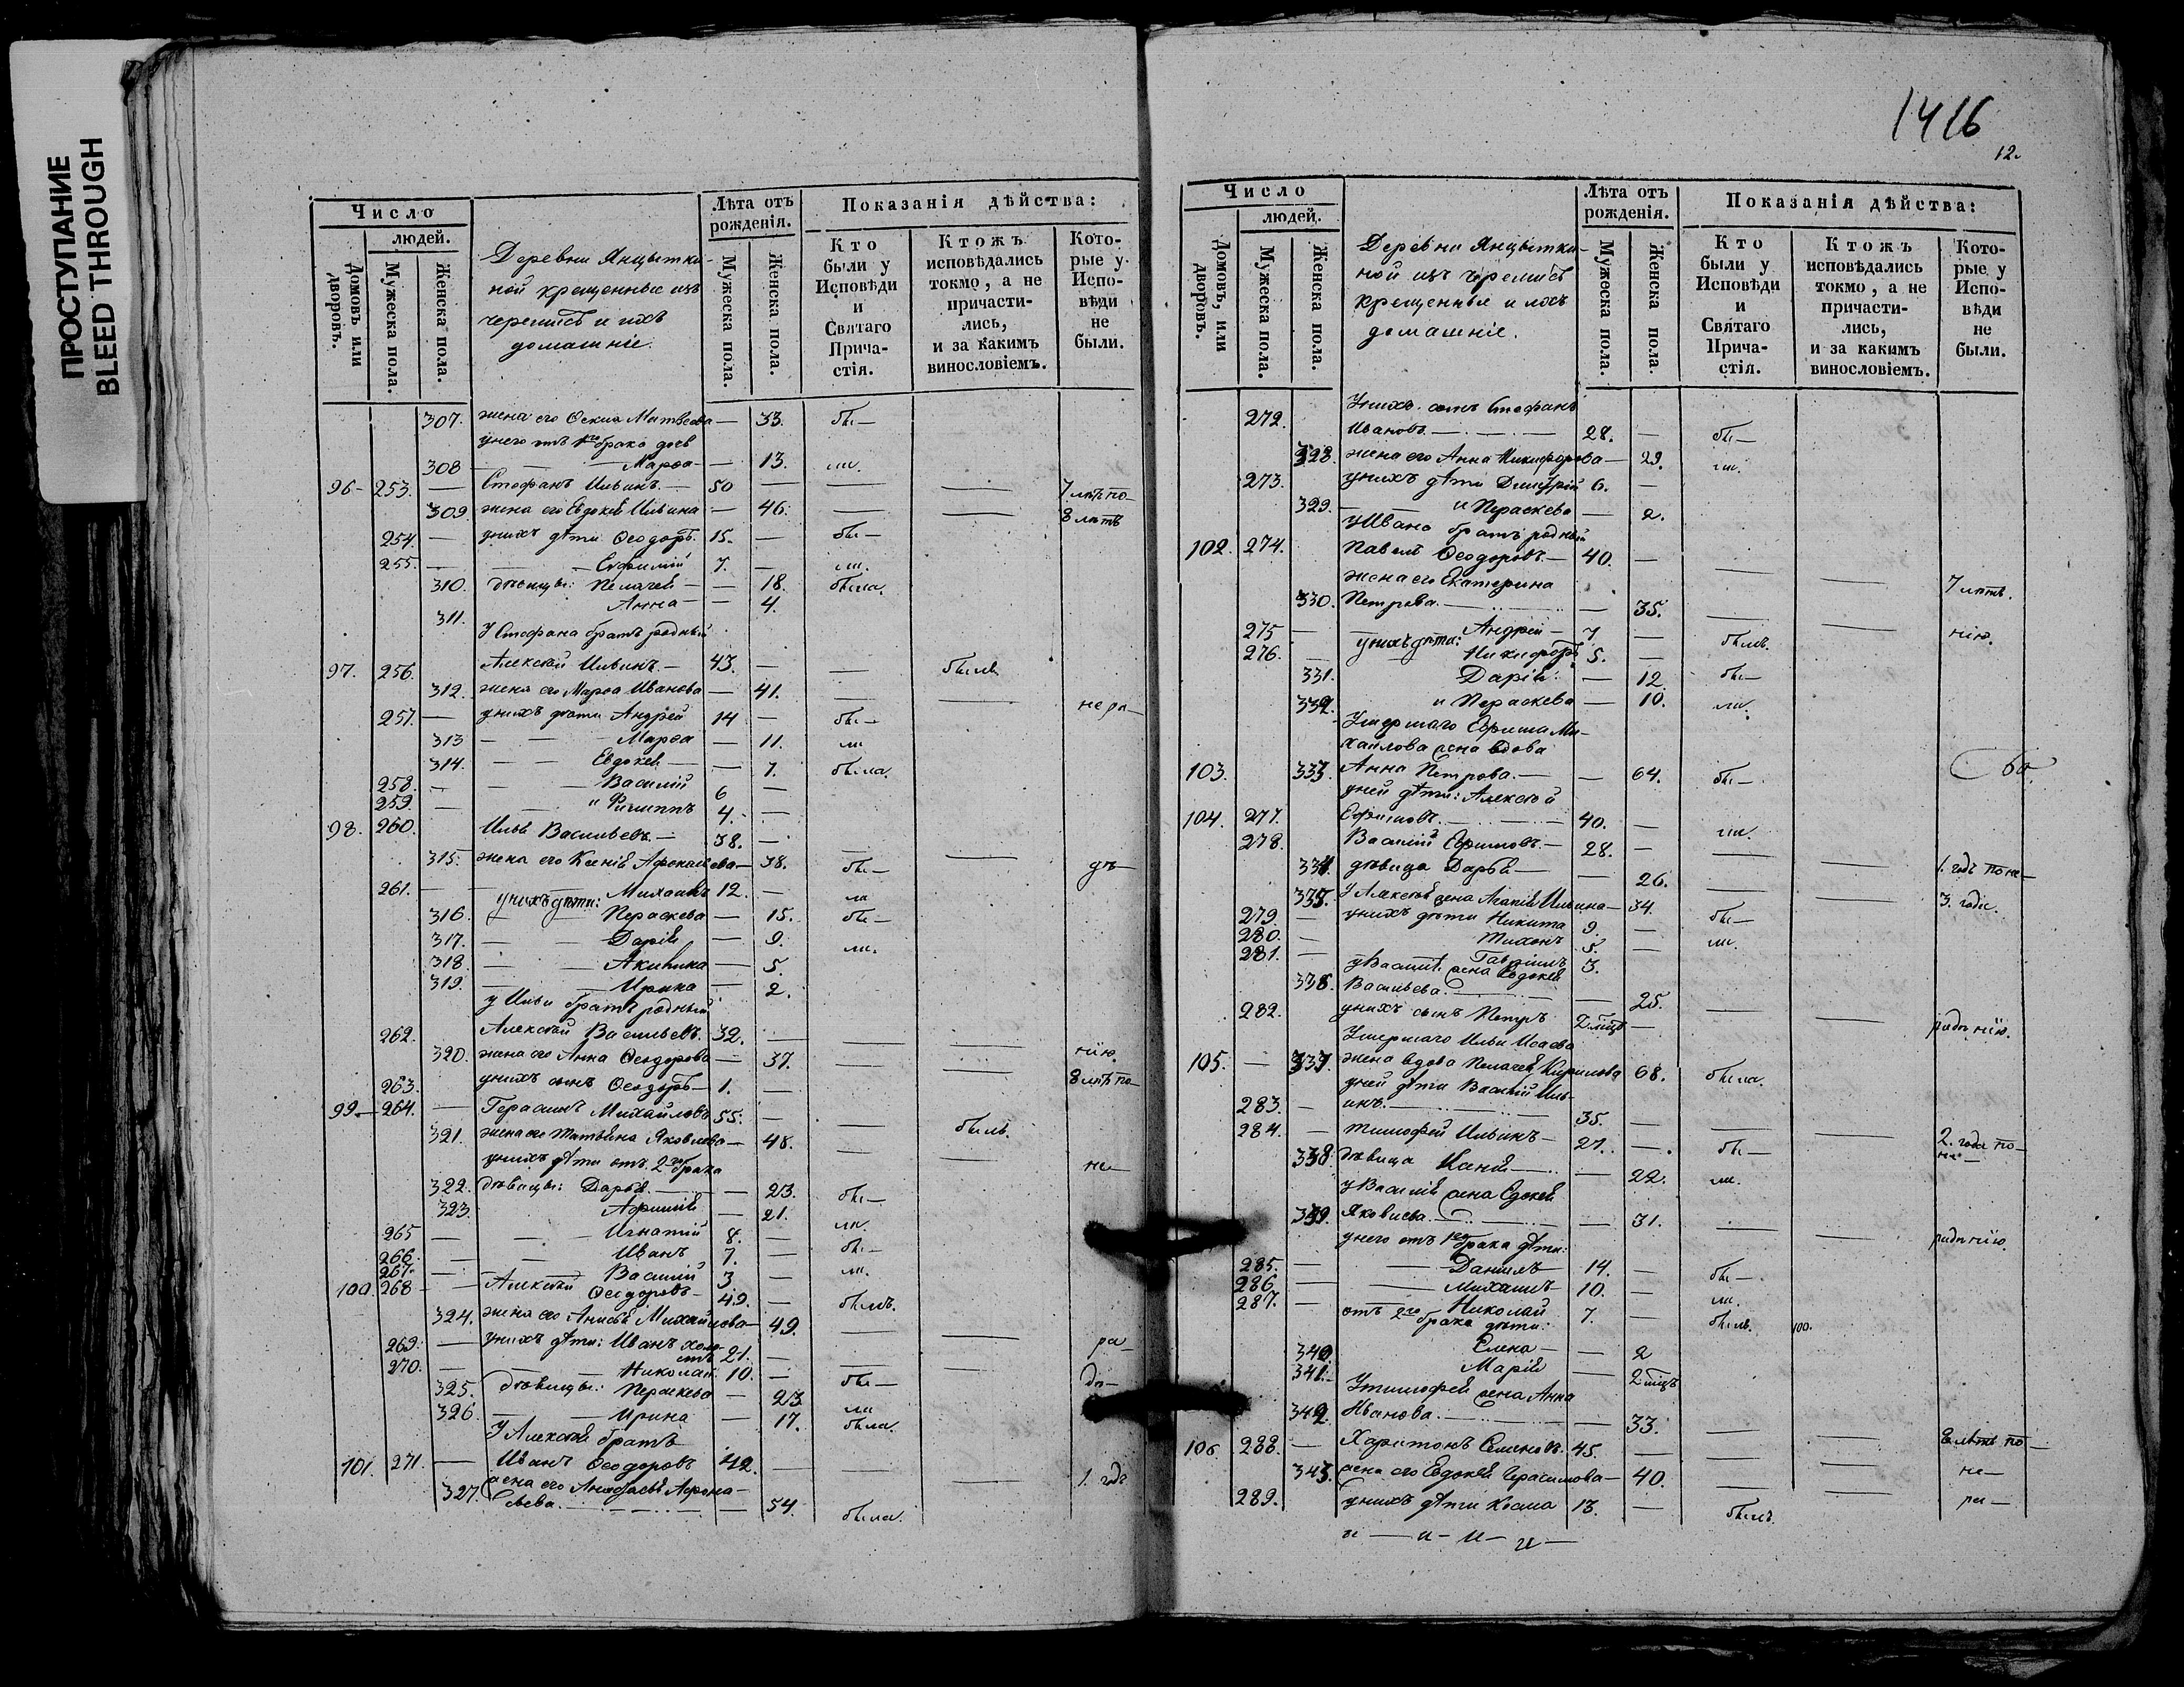 ПРОСТУПАНИЕ
BLEED THROUGH
Число
людей.
Домовъ или дворовъ.
Мужеска пола.
Женска пола.
Деревни Янцытки-
ной крещенные изъ
черемисъ и ихъ
домашніе.
Лѣта отъ рожденія.
Мужеска пола.
Женска пола.
Показанія дѣйства:
Кто были у Исповѣди и Святаго Прича-стія.
Ктожъ исповѣдались токмо, а не причасти-лись, и за какимъ винословіемъ.
Кото-рые у Испо-вѣди не были.
307. жена его Матвеева — 33. бы—
у него отъ 1го брака дочь
308 — — Марѳа — — 13. ли.
96 — 253. — Стефанъ Ильинъ — 50 — — — 7 лѣтъ по—
309. жена его Евдокія Ильина — 46. — — 8 лѣтъ
254. — у нихъ дѣти Ѳеодоръ 15. — бы—
255. — — Евфимій 7. — ли.
310. дѣвицы: Пелагея — — 18. была.
311. Анна — — 4.
У Стефана братъ родный
97. 256. Алексѣй Ильинъ — 43. — былъ
312. жена его Марѳа Иванова — 41. — — нера—
257. — у нихъ дѣти Андрей 14 — бы—
313 — — Марѳа — 11. ли
314. — — Евдокія — — 7. была.
258. — — Василій 6 —
259. — — и Филиппъ 4. —
98. 260. Илья Васильевъ — 38. — — —
315. жена его Ксенія Афонасьева — 38. бы— дѣ—
261. — у нихъ дѣти: Михаилъ 12. — ли
316. — Параскева — 15. бы—
317. — — Дарія — 9. ли.
318 — — Акилина — 5.
319. — — Ирина — 2.
у Ильи братъ родный
262. Алексѣй Васильевъ. 32. — — —
320. жена его Анна Ѳеодорова — 37. — — нію.
263. у нихъ сынъ Ѳеодоръ — 1. — 8 лѣтъ по—
99 — 264. — Герасимъ Михайловъ 55. — — былъ.
321. жена его Татьяна Яковлева — 48. — —
у нихъ дѣти отъ 2го брака не—
322. дѣвицы: Дарья. — — 23. бы—
323. — 21. ли.
265 — — — Игнатій 8. — бы—
266. — — Иванъ 7. — ли.
267. — Василій 3 —
100. 268 — — Алексѣй Ѳеодоровъ — 49. — былъ.
324. жена его Анисья Михайлова — 49. — —
269. — у нихъ дѣти: Иванъ холо-
стъ 21. — — ра—
270. — — Николай. 10. — бы— дѣ—
325. дѣвицы: Параскева — 23 ли
326. — Ирина — 17. была.
У Алексѣя братъ
101. 271. — Иванъ Ѳеодоровъ 42. — — — 1. годъ
жена его Анастасья Афона-
327. сьева. — 54. была.
1416
12.
Число
людей.
Домовъ, или дворовъ.
Мужеска пола.
Женска пола.
Деревни Янцытки-
ной изъ черемисъ
крещенныя и ихъ
домашніе.
Лѣта отъ рожденія.
Мужеска пола.
Женска пола.
Показанія дѣйства:
Кто были у Исповѣди и Святаго Прича-стія.
Ктожъ исповѣдались токмо, а не причасти-лись, и за какимъ винословіемъ.
Кото-рые у Испо-вѣди не были.
У нихъ сынъ Стефанъ
272. Ивановъ. — 28. — бы—
328. жена его Анна Никифорова — 29. ли.
273. у нихъ дѣти Димитрій 6. —
329. — и Параскева — 2.
у Ивана братъ родный
102. 274. Павелъ Ѳеодоровъ. — 40. — — —
жена его Екатерина 7 лѣтъ.
330. Петрова. — — 35. — —
275 — у нихъ дѣти: Андрей — 7 — былъ. нію.
276. — Никифоръ 5. — бы—
331. Дарія — 12
332. и Параскева — 10. ли.
Умершаго Ефима Ми-
хайлова жена вдова
103. 333. Анна Петрова. — — 64. бы—
у ней дѣти: Алексѣй
104. 277. Ефимовъ. — 40. — ли.
278. Василій Ефимовъ. — 28. — — — 1. годъ по не—
334. дѣвица Дарья — — 26. — — 3. годы.
335. У Алексѣя жена Ильина — 34. бы—
279 — у нихъ дѣти Никита 9. — ли.
280. — Тихонъ 5 —
281. — Гавріилъ 3.
у Василія жена Евдокія
336. Васильева. — — 25. — —
282. у нихъ сынъ Петръ 2 мѣцъ — радѣнію.
Умершаго Ильи Исаева
105. — 337. жена вдова Пелагея Кирилова 68. была.
у ней дѣти Василій Иль-
283. — инъ. — 35. — — —
284. — Тимофей Ильинъ — 27. — бы— 2. года по—
338. дѣвица — — 22. ли. не—
у Василія жена Евдокія
339. Яковлева. — — 31. — —
у него отъ 1го брака дѣти: радѣнію.
285. — — Даніилъ — 14. — бы—
286. — — Михаилъ — 10. — ли.
287. — Николай 7. — былъ. 100.
отъ 2го брака дѣти:
340. Елена — — 2
341. — Марія 2 мѣцъ
У Тимофея жена Анна
342. Иванова. — — 33. — —
106 288. — Харитонъ Семеновъ. 45. — — — 8 лѣтъ по—
343. жена его Евдокія Герасимова — 40. — — не—
289. у нихъ дѣти Косма 13. — былъ. ра—
и — и — и — и —